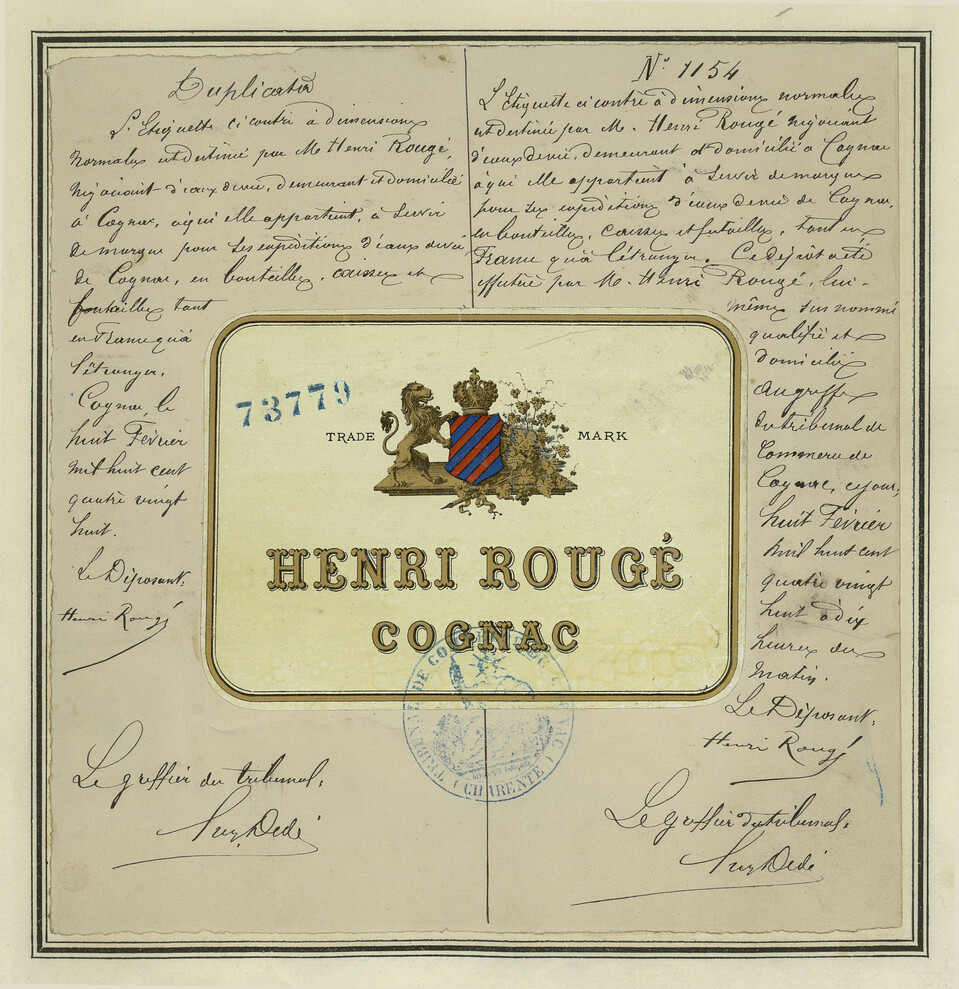 Duplicata
L'Etiquette ci contre à dimensions
normales est destinée par M. Henri Rougé,
négociant d'eaux de vie, demeurant et domicilié
à Cognac, à qui elle appartient, à servir
de marque pour ses expéditions d'eaux de vie
de Cognac, en bouteilles, caisses et
futailles tant
en France qu'à
l'étranger.
Cognac, le
huit Février
mil huit cent
quatre vingt
huit.
Le Déposant:
Henri Rougé
Le greffier du tribunal:
N° 1154
L'Etiquette ci contre à dimensions normales
est destinée par M. Henri Rougé négociant
d'eaux de vie, demeurant et domicilié à Cognac
à qui elle appartient à servir de marque
pour ses expéditions d'eaux de vie de Cognac,
en bouteilles, caisses et futailles, tant en
France qu'à l'étranger. Ce dépôt a été
effectué par M. Henri Rougé, lui-
même sus nommé
qualifié et
domicilié
au greffe
du tribunal de
Commerce de
Cognac, ce jour,
huit Février
mil huit cent
quatre vingt
huit à dix
heures du
matin.
Le Déposant:
Henri Rougé
Le greffier du tribunal:
73779
TRADE MARK
HENRI ROUGÉ
COGNAC
TRIBUNAL DE COMMERCE DE COGNAC
(CHARENTE)